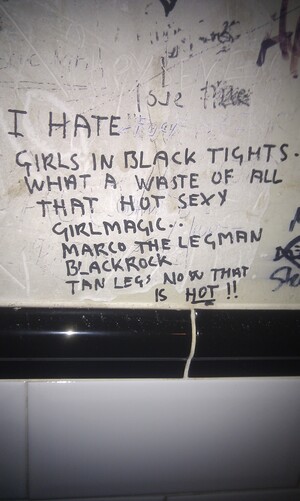 I HATE
GIRLS IN BLACK TIGHTS.
WHAT A WASTE OF ALL
THAT HOT SEXY
GIRLMAGIC..
MARCO THE LEGMAN
BLACKROCK
TAN LEGS NOW THAT
IS HOT!!